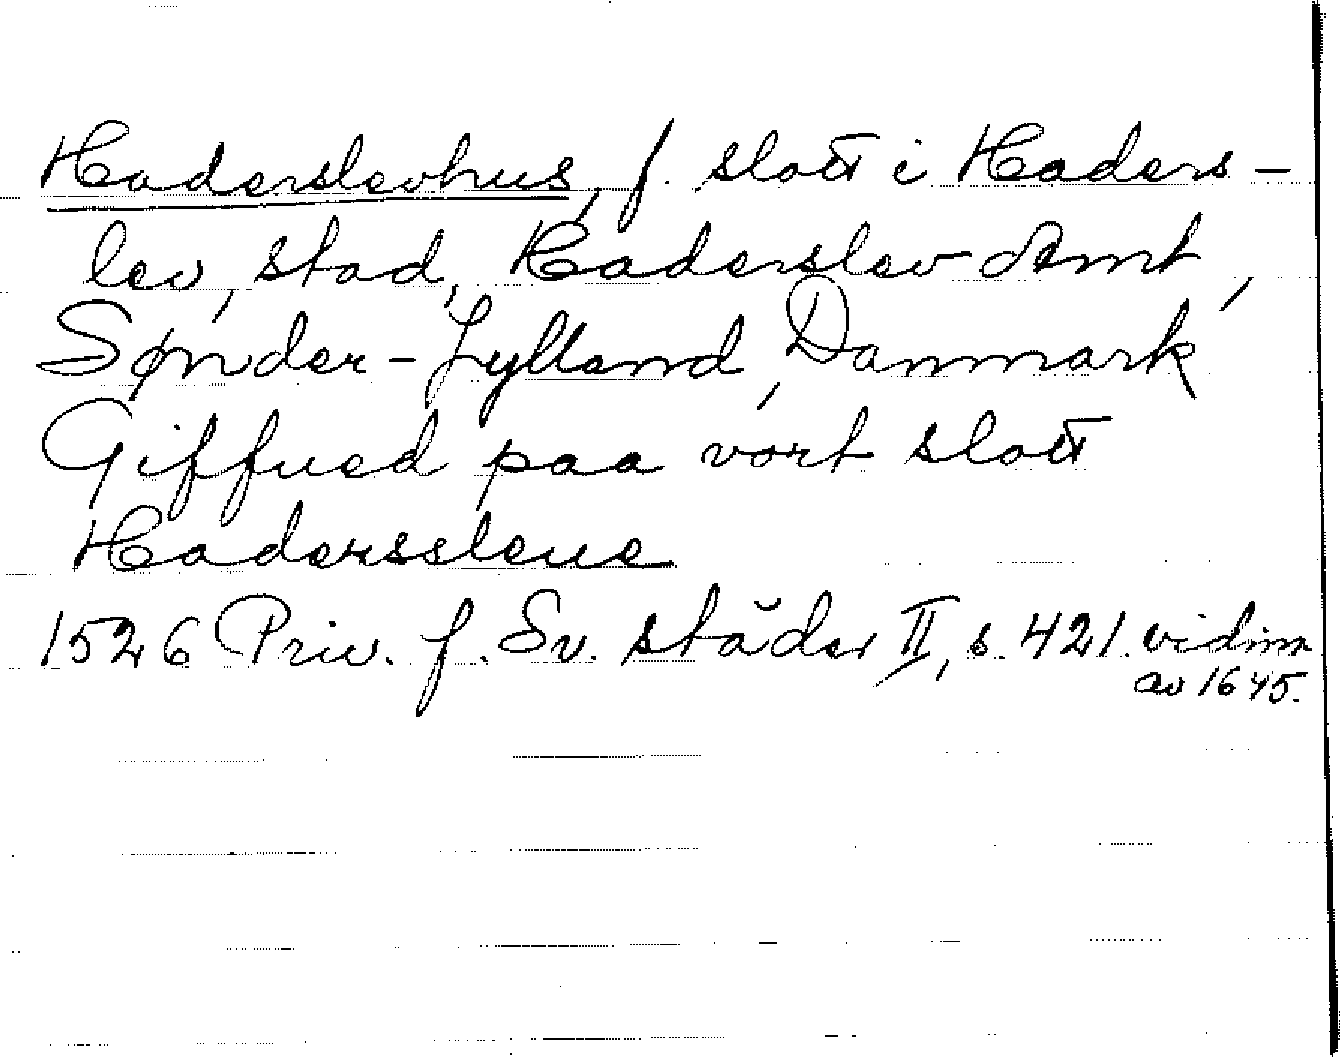 Haderslevhus, f. slott i Haders-
lev, stad, Haderslev Amt,
Sønder-Jylland, Danmark
Giffued paa vort slott
Haderssleue
1526 Priv. f. Sv. städer II, s. 421. vidim
av 1645.